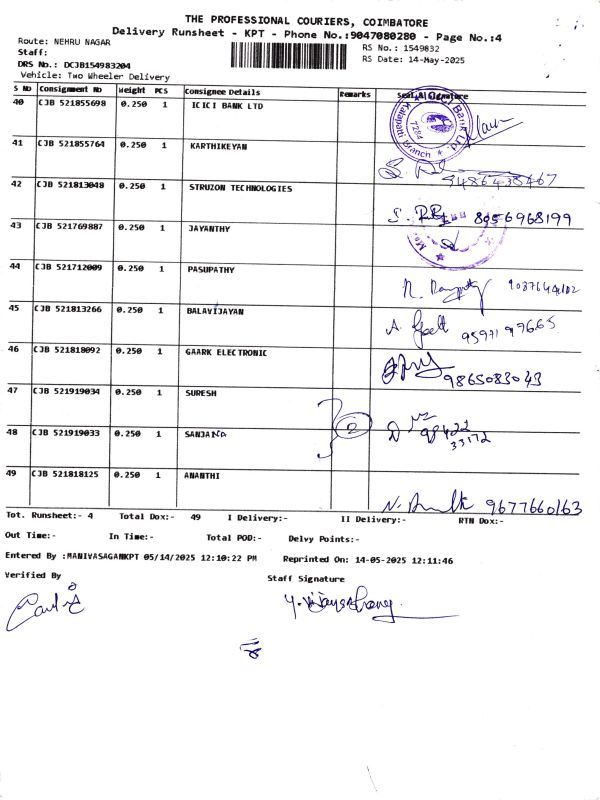 THE PROFESSIONAL COURIERS, COIMBATORE
Delivery Runsheet - KPT - Phone No.:9047080280 - Page No.:4
Route: NEHRU NAGAR
RS No.: 1549832
Staff:
RS Date: 14-May-2025
DRS No.: DCJB154983204
Vehicle: Two Wheeler Delivery
S No Consignment No Weight PCS Consignee Details Remarks Seal & Signature
40 CJB 521855698 0.250 1 ICICI BANK LTD
ICICI Bank Ltd
Kalapatti Branch
7264
41 CJB 521855764 0.250 1 KARTHIKEYAN
9486435467
42 CJB 521813048 0.250 1 STRUZON TECHNOLOGIES
8056968199
43 CJB 521769887 0.250 1 JAYANTHY
44 CJB 521712009 0.250 1 PASUPATHY
45 CJB 521813266 0.250 1 BALAVIJAYAN
9597199665
46 CJB 521818092 0.250 1 GAARK ELECTRONIC
9865083043
47 CJB 521919034 0.250 1 SURESH
2
98422
33172
48 CJB 521919033 0.250 1 SANJANA
49 CJB 521818125 0.250 1 ANANTHI
9677660163
Tot. Runsheet:- 4 Total Dox:- 49 I Delivery:- II Delivery:- RTN Dox:-
Out Time:- In Time:- Total POD:- Delvy Points:-
Entered By :MANIVASAGANKPT 05/14/2025 12:10:22 PM Reprinted On: 14-05-2025 12:11:46
Verified By
Staff Signature